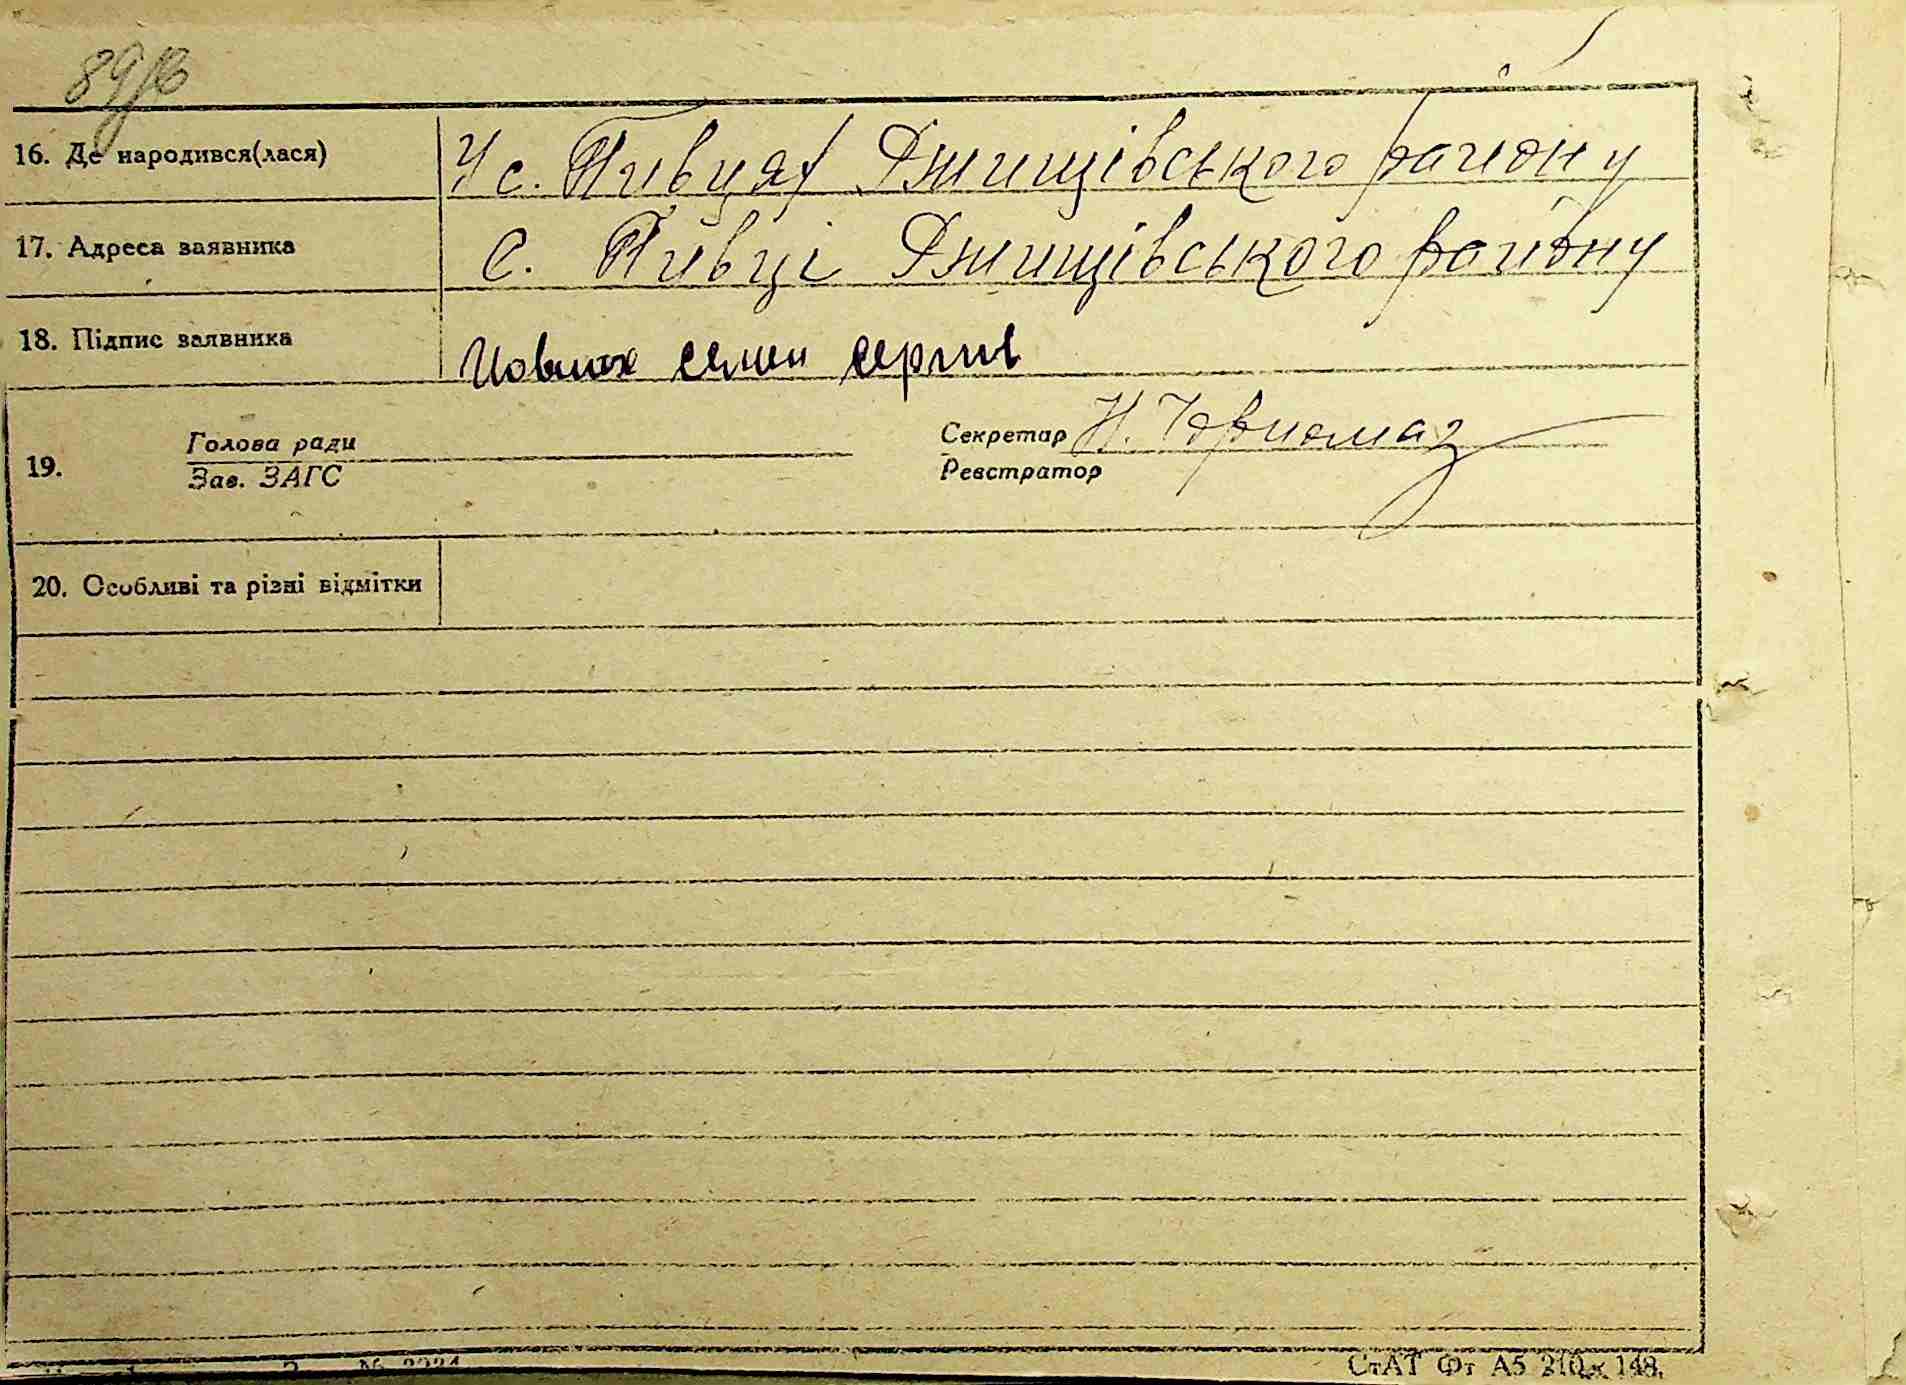 16. Де народився(лася) У с. Пивцях Ржищівського району
17. Адреса заявника с. Пивці Ржищівського району
18. Підпис заявника семен сергив
19. Голова ради Секретар
Зав. ЗАГС Реєстратор
20. Особливі та різні відмітки
СтАТ Фт А5 210×148.